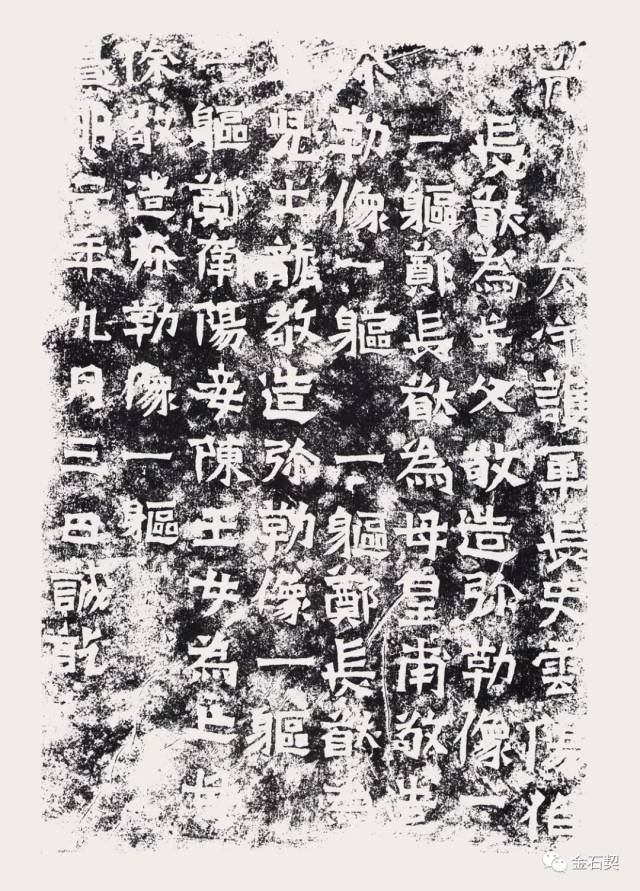 前太守護軍長史雲陽伯
長猷為亡父敬造弥勒像一
一軀鄭長猷為母皇甫敬造
弥勒像一軀一軀鄭長猷為
兒士龍敬造弥勒像一軀
一軀鄭南陽妾陳玉女為亡母
徐敬造弥勒像一軀
景明二年九月三日誡訖
金石契